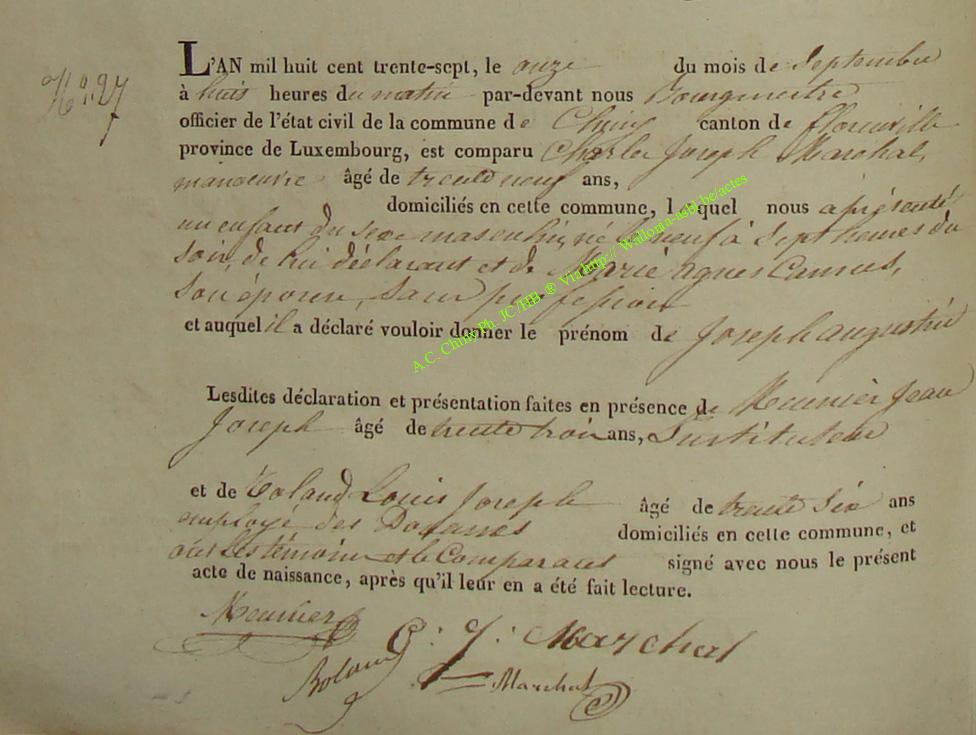 No. 27
L'AN mil huit cent trente-sept, le onze du mois de Septembre
à huit heures du matin par-devant nous Bourgmestre
officier de l'état civil de la commune de Chiny canton de florenville
province de Luxembourg, est comparu Charles Joseph Marchal,
manoeuvre âgé de trente neuf ans,
domiciliés en cette commune, lequel nous a présenté
un enfant du sexe masculin, né le neuf à Sept heures du
soir, de lui déclarant et de Marie agnes Camus,
Son épouse, sans profession
et auquel il a déclaré vouloir donner le prénom de Joseph augustin
Lesdites déclaration et présentation faites en présence de Meunier Jean
Joseph âgé de trente trois ans, Instituteur
et de Roland Louis Joseph âgé de trente Six ans
employé des Douanes domiciliés en cette commune, et
ont Les témoins et le Comparant signé avec nous le présent
acte de naissance, après qu'il leur en a été fait lecture.
Meunier
Roland C: J: Marchal
Marchal
A.C. Chiny Ph. JC/HB ® Via http://Wallonia-asbl.be/actes